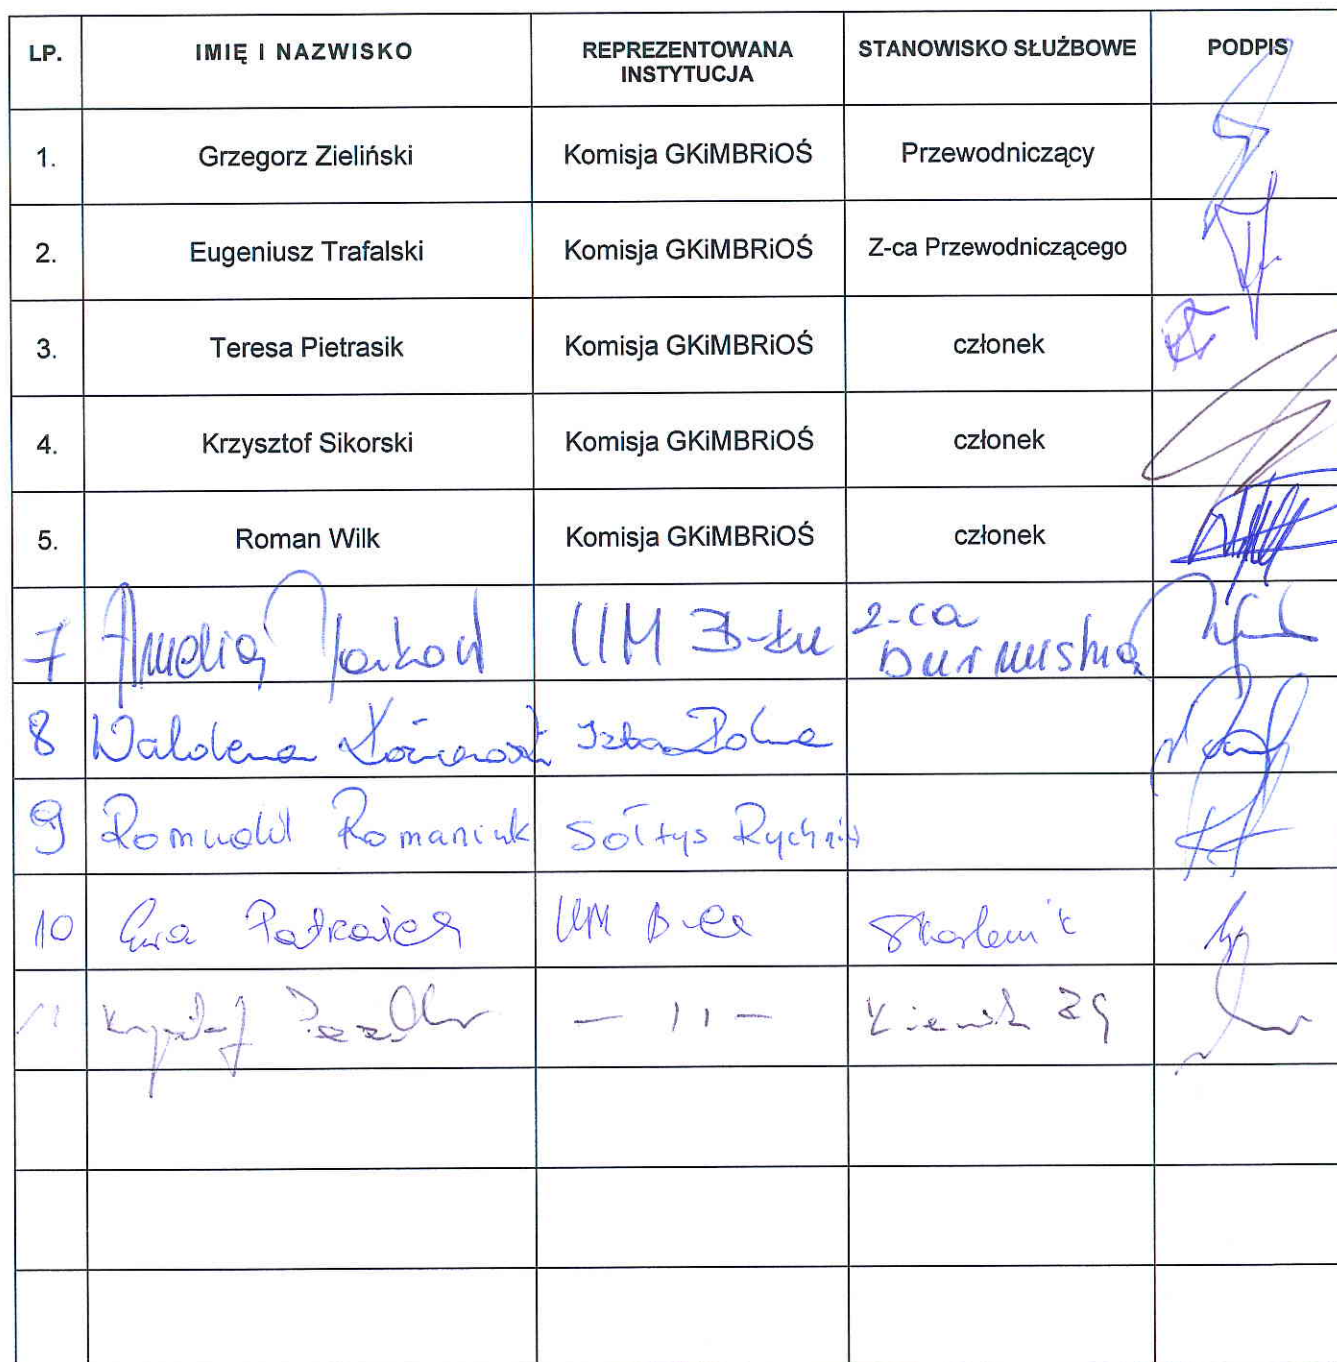 LP. IMIĘ I NAZWISKO REPREZENTOWANA INSTYTUCJA STANOWISKO SŁUŻBOWE PODPIS
1. Grzegorz Zieliński Komisja GKiMBRiOŚ Przewodniczący
2. Eugeniusz Trafalski Komisja GKiMBRiOŚ Z-ca Przewodniczącego
3. Teresa Pietrasik Komisja GKiMBRiOŚ członek
4. Krzysztof Sikorski Komisja GKiMBRiOŚ członek
5. Roman Wilk Komisja GKiMBRiOŚ członek
7 UM Z-ca Burmistrza
8 Izba Rolna
9 Romuald Romaniuk Sołtys
10 Ewa UM Skarbnik
11 Krzysztof — 11 —